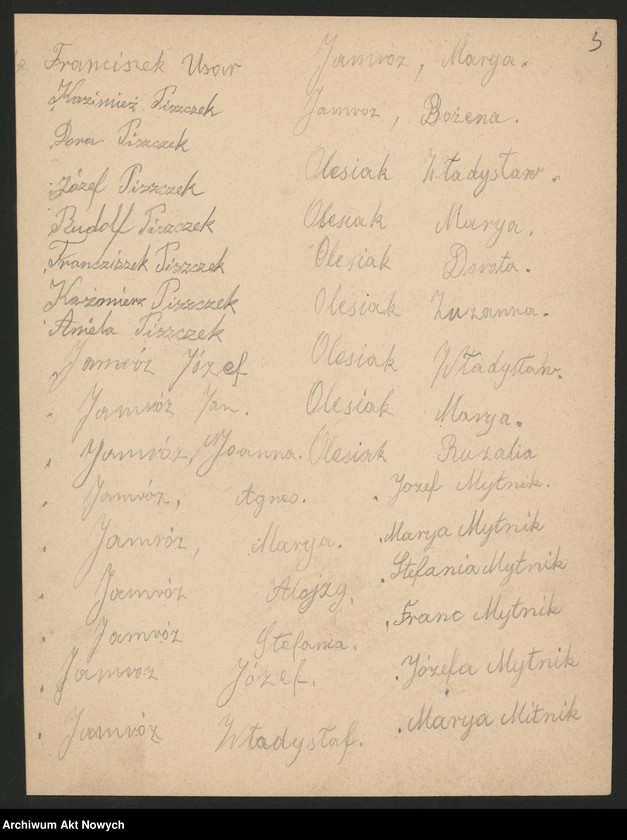 5
Franciszek Usar
Kazimież Piszczek
Dora Piszczek
Józef Piszczek
Rudolf Piszczek
Franciszek Piszczek
Kazimierz Piszczek
Aniela Piszczek
Jamróz Józef
Jamróz Jan.
Jamróz, Joanna.
Jamróz, Agnes.
Jamróz, Marya.
Jamróz Alojzy.
Jamróz Stefania.
Jamroz Józef.
Jamróz Władysłaf.
Jamroz, Marya.
Jamroz, Bożena.
Olesiak Władysław.
Olesiak Marya.
Olesiak Dorota.
Olesiak Zuzanna.
Olesiak Władysław.
Olesiak Marya.
Olesiak Ruzalia
Jozef Mytnik.
Marya Mytnik
Stefania Mytnik
Franc Mytnik
Józefa Mytnik
Marya Mitnik
Archiwum Akt Nowych